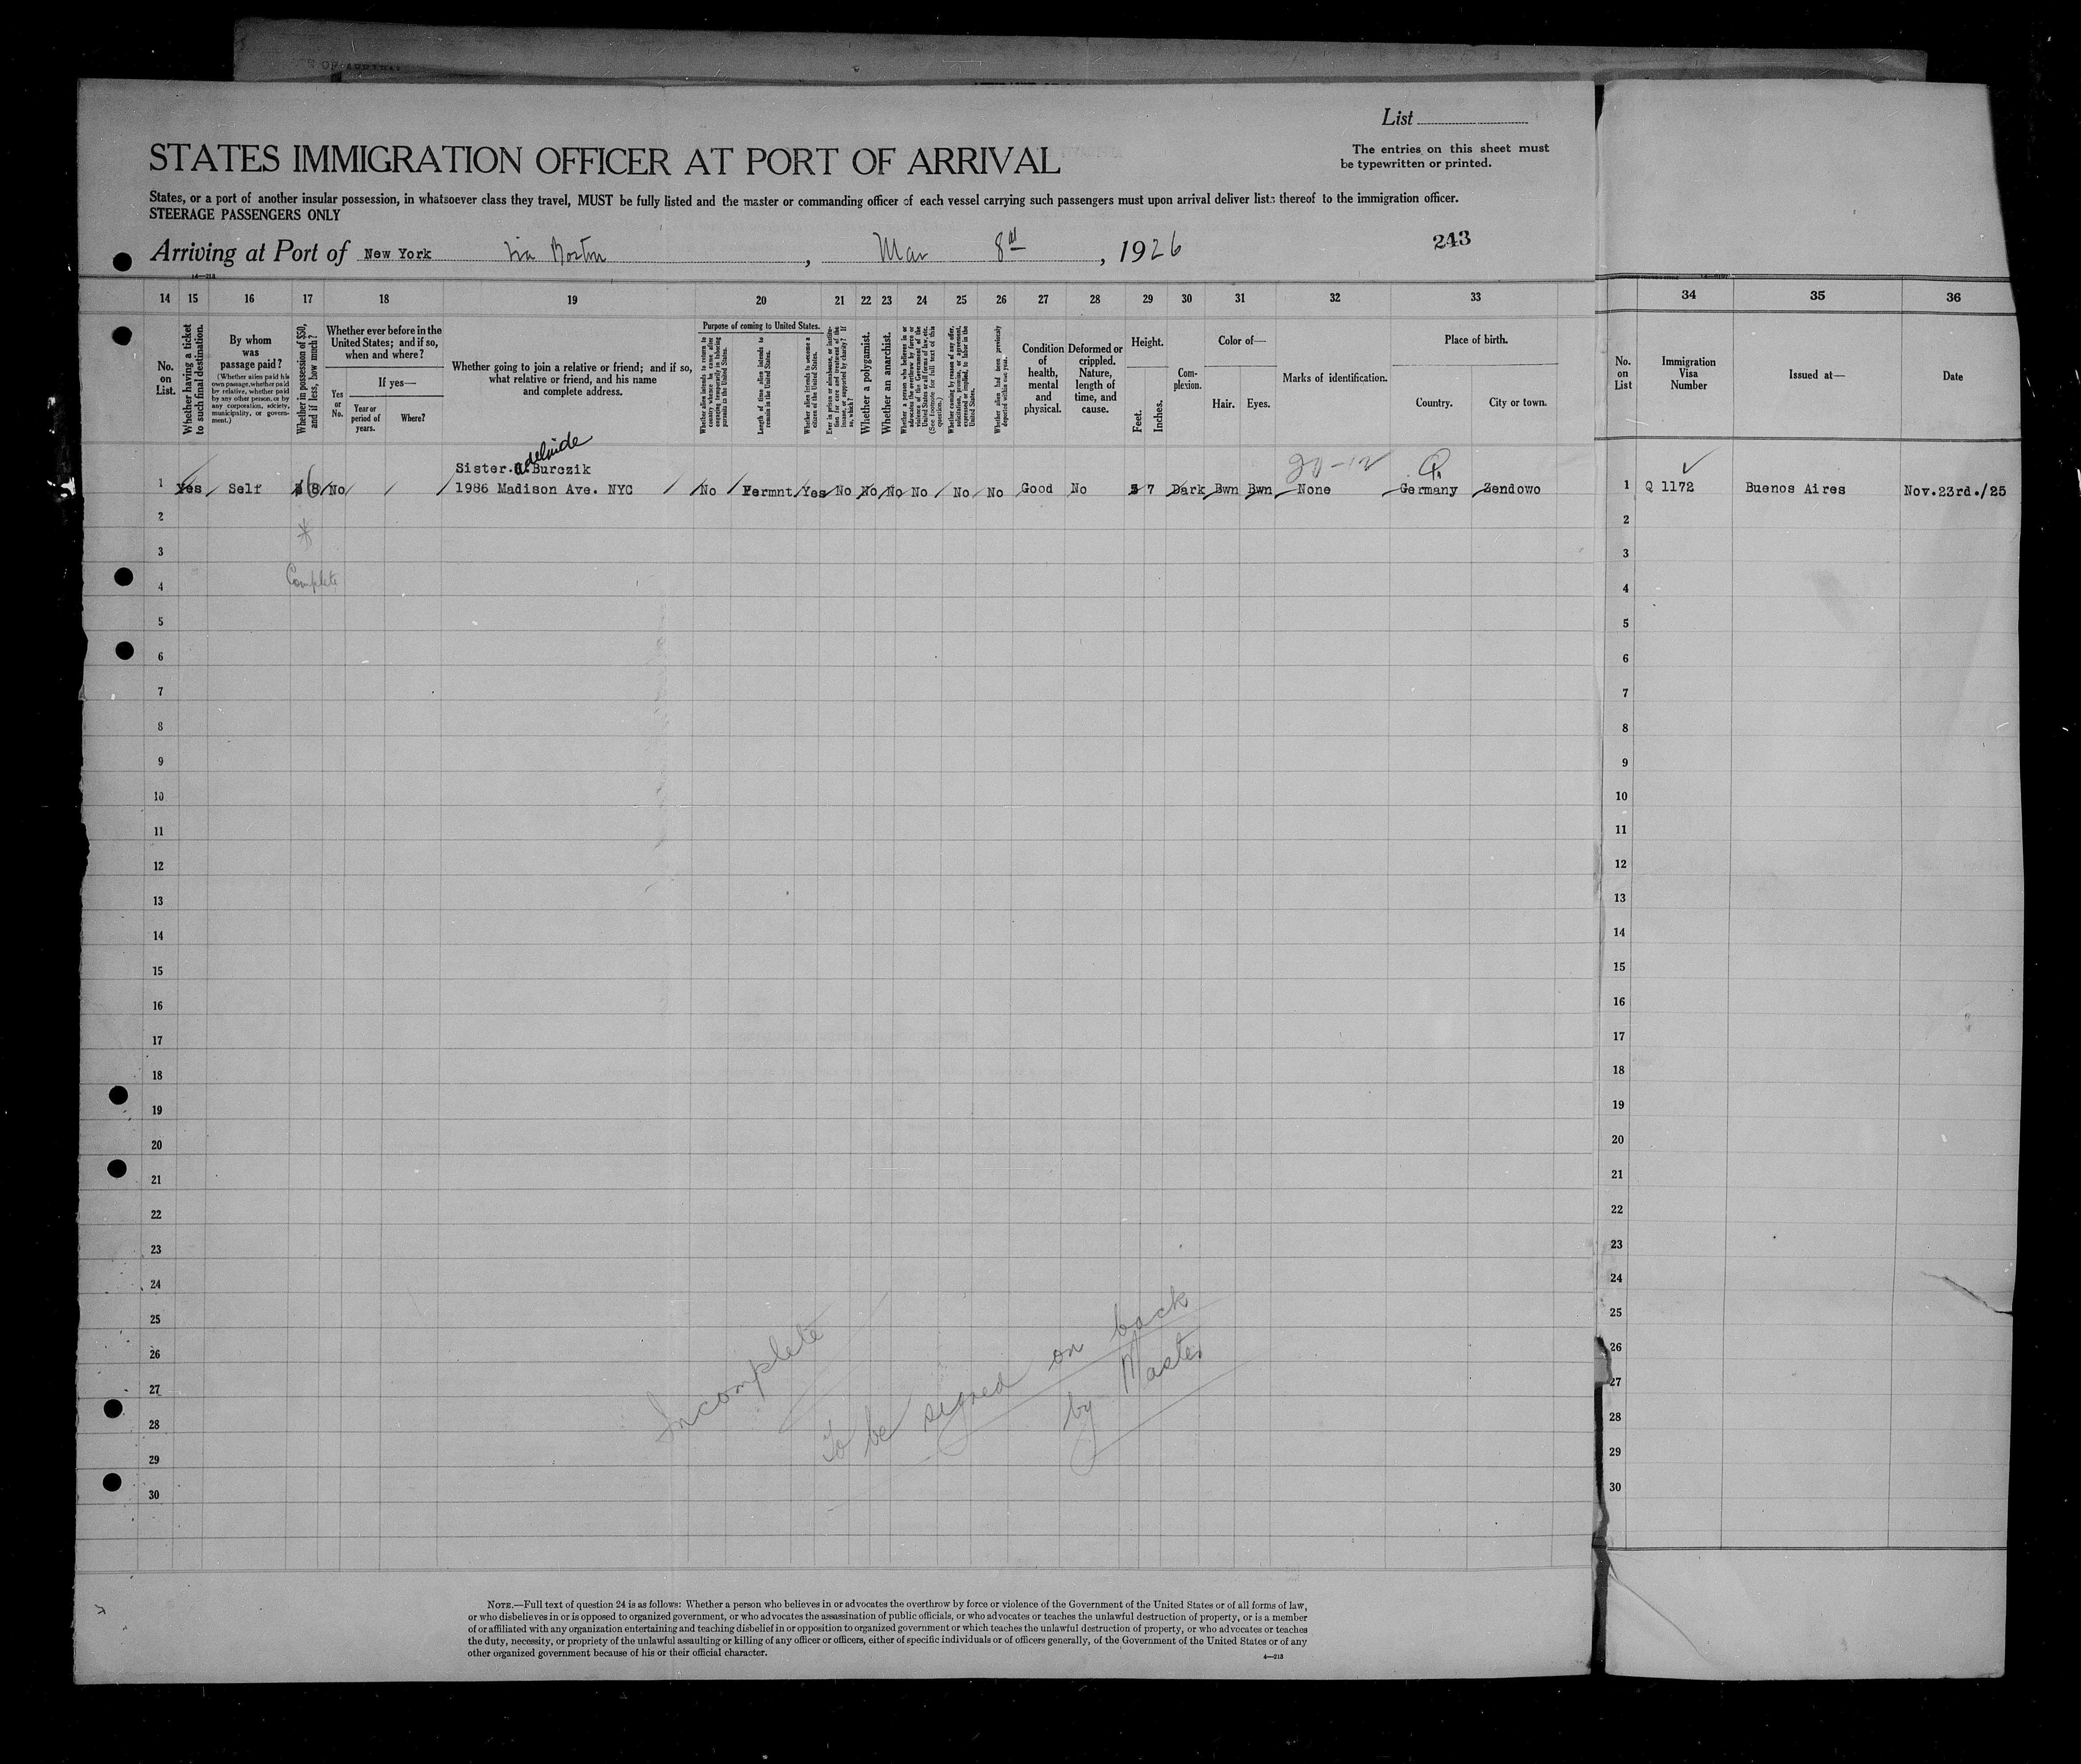 List
STATES IMMIGRATION OFFICER AT PORT OF ARRIVAL
The entries on this sheet must
be typewritten or printed.
States, or a port of another insular possession, in whatsoever class they travel, MUST be fully listed and the master or commanding officer of each vessel carrying such passengers must upon arrival deliver lists thereof to the immigration officer.
STEERAGE PASSENGERS ONLY
Arriving at Port of New York via Boston, Mar 8th, 1926
243
14 15 16 17 18 19 20 21 22 23 24 25 26 27 28 29 30 31 32 33 34 35 36
No. on List.
Whether having a ticket to such final destination.
By whom was passage paid?
(Whether alien paid his own passage, whether paid by relative, whether paid by any other person, or by any corporation, society, municipality, or government.)
Whether in possession of $50, and if less, how much?
Whether ever before in the United States; and if so, when and where?
Yes or No.
If yes—
Year or period of years.
Where?
Whether going to join a relative or friend; and if so, what relative or friend, and his name and complete address.
Purpose of coming to United States.
Whether alien intends to return to country whence he came after engaging temporarily in laboring pursuits in the United States.
Length of time alien intends to remain in the United States.
Whether alien intends to become a citizen of the United States.
Ever in prison or almshouse, or institution for care and treatment of the insane, or supported by charity? If so, which?
Whether a polygamist.
Whether an anarchist.
Whether a person who believes in or advocates the overthrow by force or violence of the Government of the United States or all forms of law, etc. (See footnote for full text of this question.)
Whether coming by reason of any offer, solicitation, promise, or agreement, expressed or implied, to labor in the United States.
Whether alien had been previously deported within one year.
Condition of health, mental and physical.
Deformed or crippled. Nature, length of time, and cause.
Height.
Feet.
Inches.
Complexion.
Color of—
Hair.
Eyes.
Marks of identification.
Place of birth.
Country.
City or town.
No. on List
Immigration Visa Number
Issued at—
Date
Adelaide
Sister. Burczik
20-12
Q
1 Yes Self No 1986 Madison Ave. NYC No Permnt Yes No No No No No No Good No 5 7 Dark Bwn Bwn None Germany Zendowo 1 Q 1172 Buenos Aires Nov.23rd./25
2 2
3 3
4 Complete 4
5 5
6 6
7 7
8 8
9 9
10 10
11 11
12 12
13 13
14 14
15 15
16 16
17 17
18 18
19 19
20 20
21 21
22 22
23 23
24 24
25 25
26 26
27 27
28 28
29 29
30 30
Incomplete
To be signed on back
by Master
NOTE.—Full text of question 24 is as follows: Whether a person who believes in or advocates the overthrow by force or violence of the Government of the United States or of all forms of law,
or who disbelieves in or is opposed to organized government, or who advocates the assassination of public officials, or who advocates or teaches the unlawful destruction of property, or is a member
of or affiliated with any organization entertaining and teaching disbelief in or opposition to organized government or which teaches the unlawful destruction of property, or who advocates or teaches
the duty, necessity, or propriety of the unlawful assaulting or killing of any officer or officers, either of specific individuals or of officers generally, of the Government of the United States or of any
other organized government because of his or their official character.
4—213